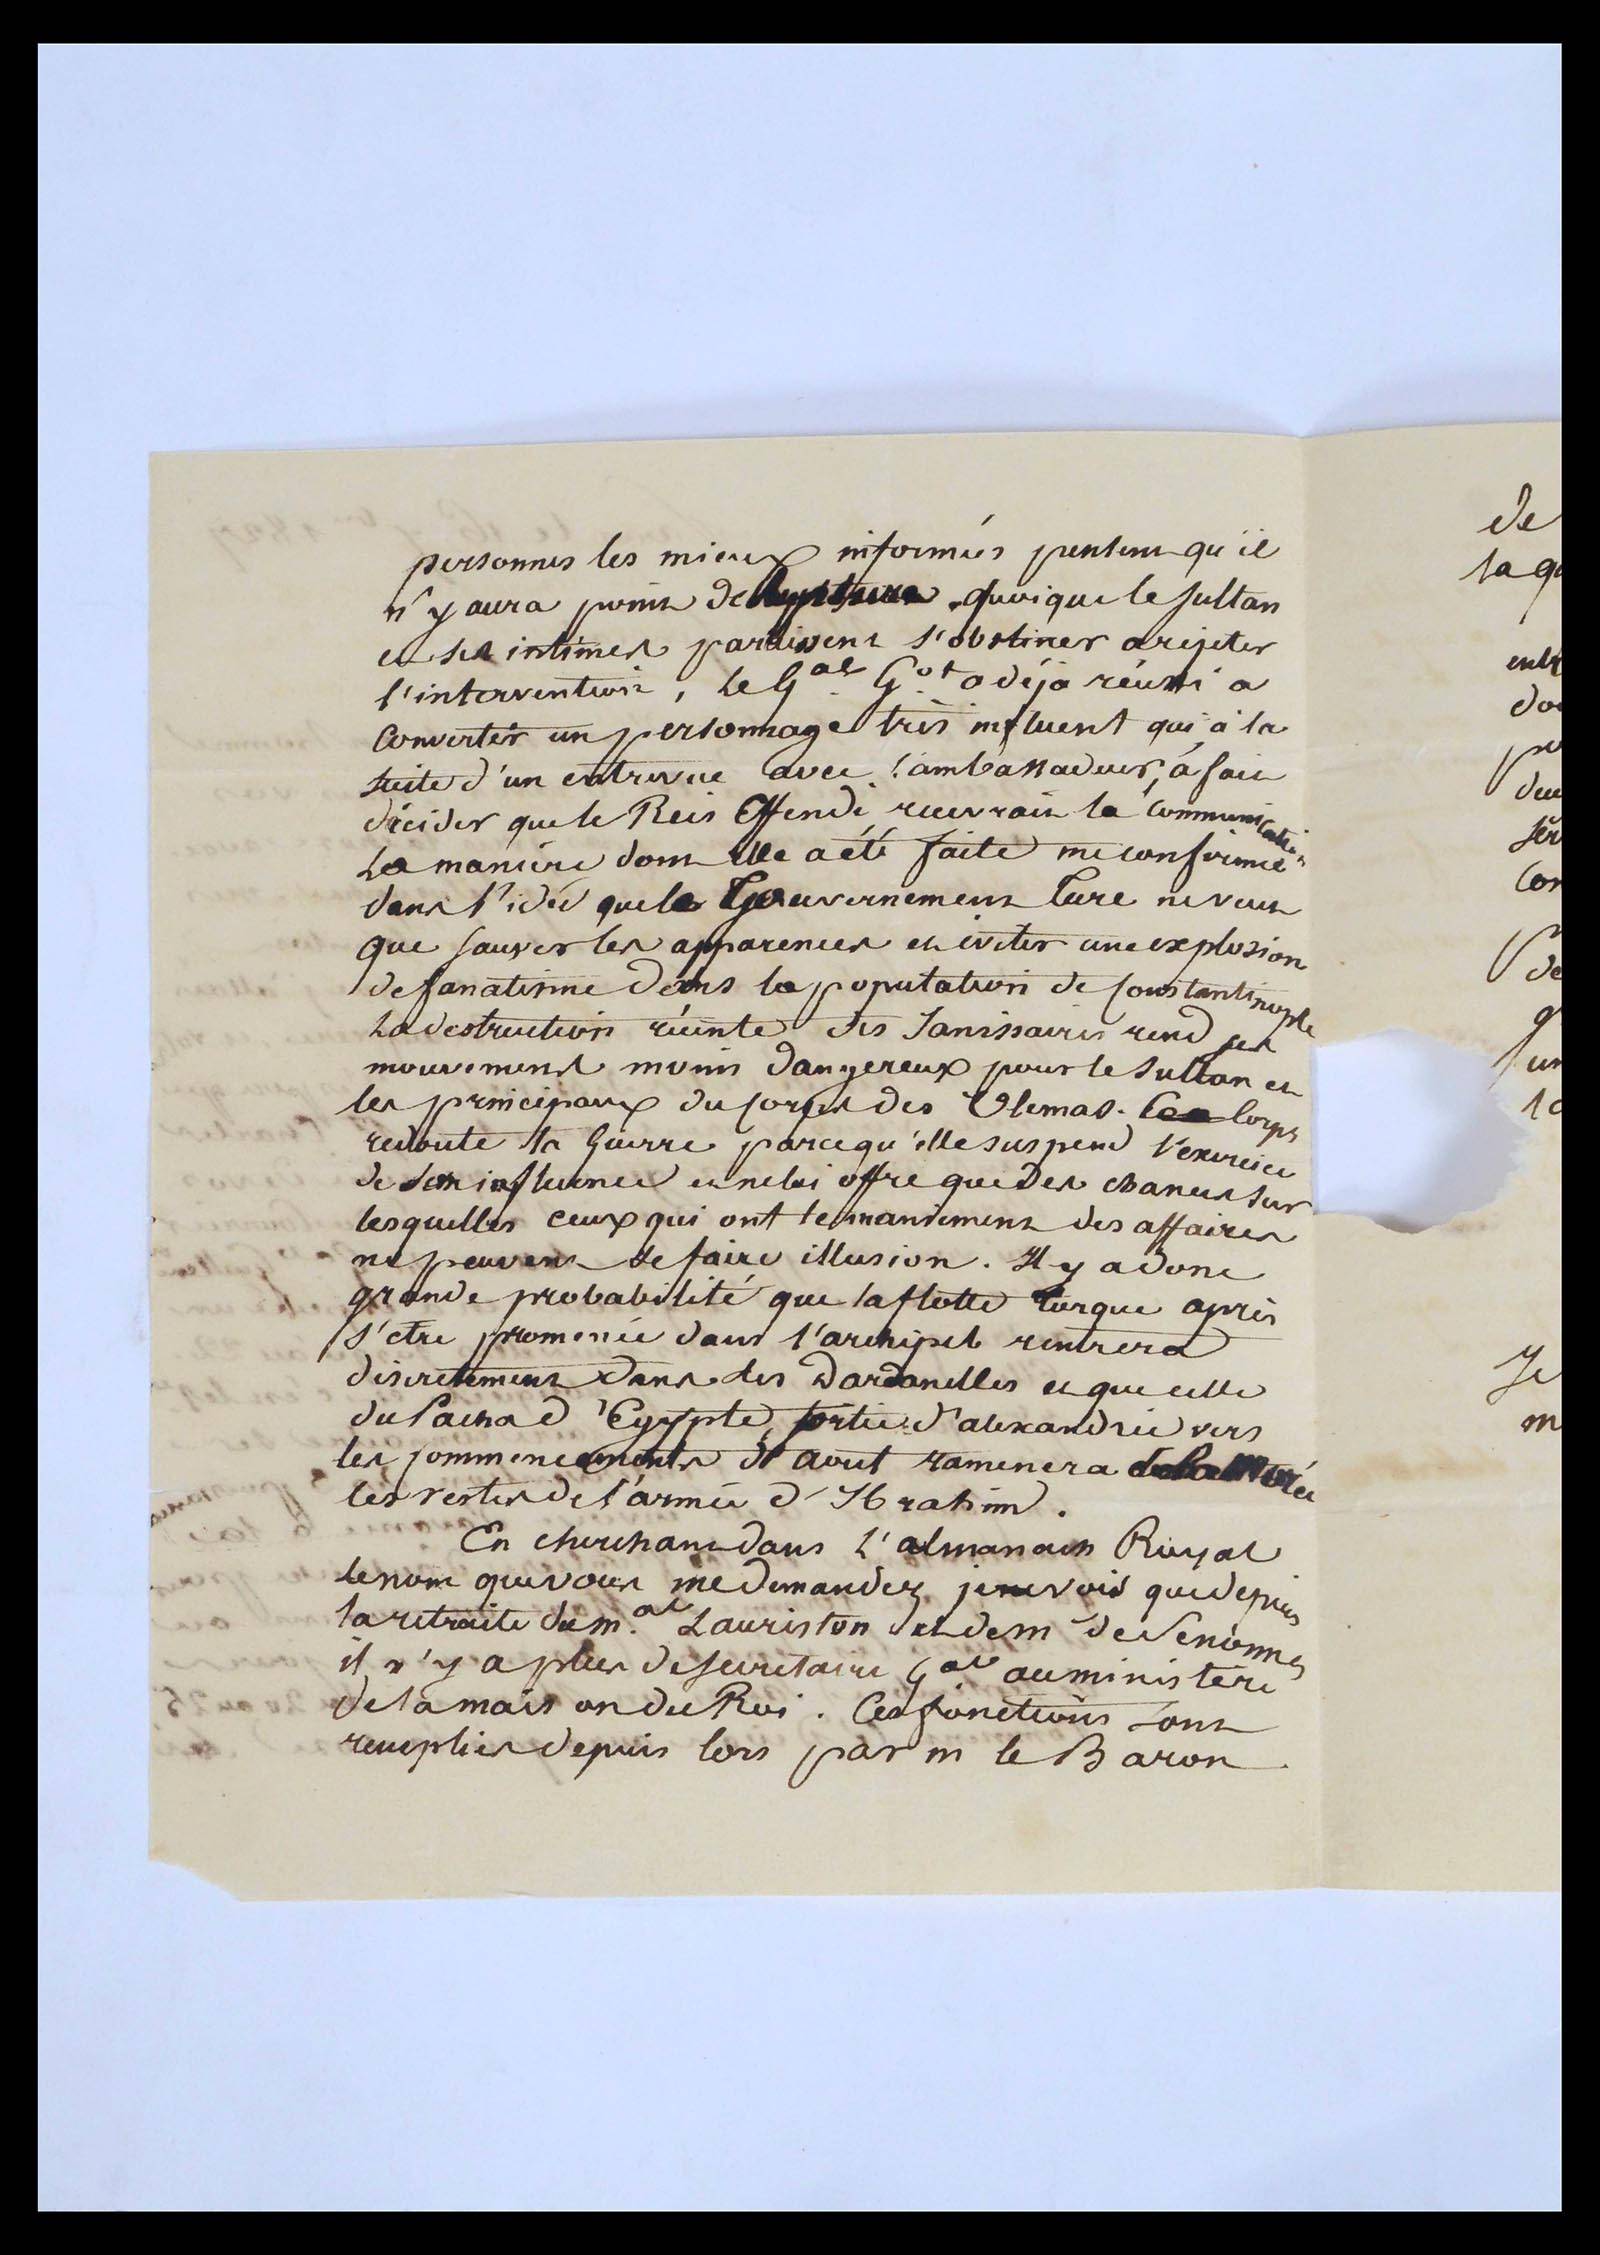 personnes les mieux informées pensent qu'il
n'y aura point de rupture quoique le sultan
et ses intimes paraissent s'obstiner a rejeter
l'intervention, le Gal. G.ot a déja réussi a
convertir un personnage très influent qui à la
suite d'un entrevue avec l'ambassadeur, a fait
décider que le Reis Effendi recevrait la communication
La manière dont elle a été faite me confirme
dans l'idée que le Gouvernement turc ne veut
que sauver les apparences et éviter une explosion
de fanatisme dans la population de Constantinople
La destruction récente des Janissaires rend ses
mouvements moins dangereux pour le sultan et
les principaux du corps des Ulemas. Ce corps
redoute la guerre parcequ'elle suspend l'exercice
de son influence et ne lui offre que des chances sur
lesquelles ceux qui ont le maniement des affaires
ne peuvent se faire illusion. Il y a donc
grande probabilité que la flotte turque après
s'etre promenée dans l'archipel rentrera
discretement dans les Dardanelles et que celle
du Pacha d'Egypte, sortie d'alexandrie vers
les commencements d'aout ramenera de la Morée
les restes de l'armée d'Ibrahim.
En cherchant dans l'almanach Royal
le nom que vous me demandez je vois que depuis
la retraite du m.al Lauriston et de m de Senonnes
il n'y a plus de secretaire Gal au ministère
de la maison du Roi. Ces fonctions sont
remplies depuis lors par m le Baron
de
la
Je